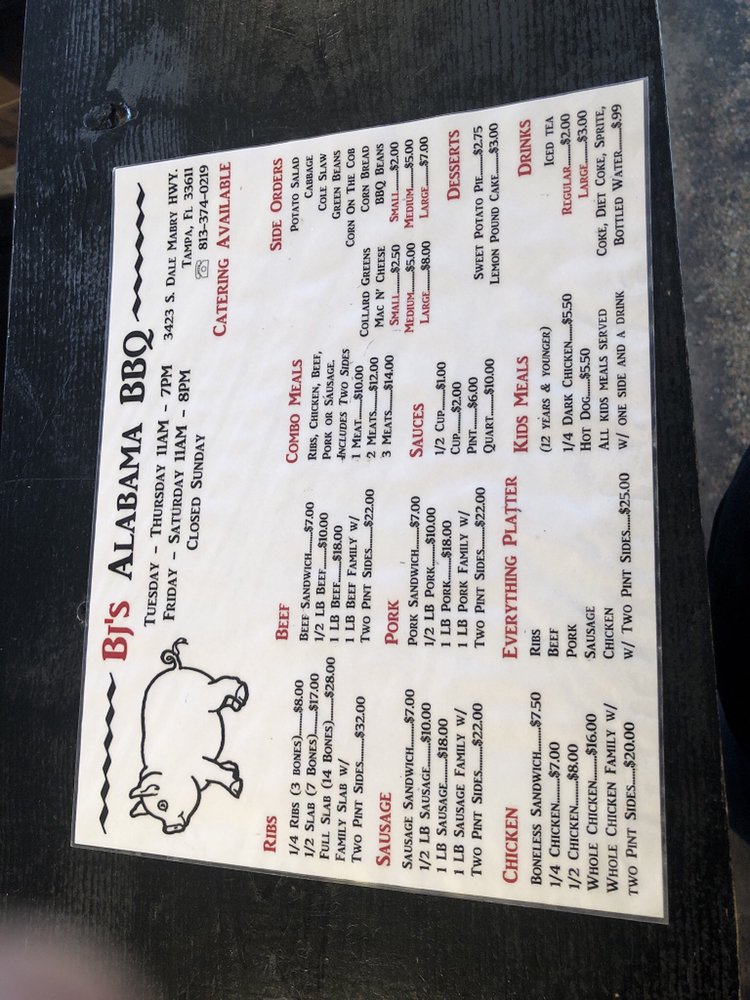 BJ's Alabama BBQ
Tuesday - Thursday 11am - 7pm
Friday - Saturday 11am - 8pm
Closed Sunday
3423 S. Dale Mabry Hwy.
Tampa, Fl 33611
☏ 813-374-0219
Catering Available
Ribs
1/4 Ribs (3 bones)......$8.00
1/2 Slab (7 Bones)......$17.00
Full Slab (14 Bones)......$28.00
Family Slab w/
Two Pint Sides......$32.00
Sausage
Sausage Sandwich......$7.00
1/2 lb Sausage......$10.00
1 lb Sausage......$18.00
1 lb Sausage Family w/
Two Pint Sides......$22.00
Chicken
Boneless Sandwich......$7.50
1/4 Chicken......$7.00
1/2 Chicken......$8.00
Whole Chicken......$16.00
Whole Chicken Family w/
two Pint Sides......$20.00
Beef
Beef Sandwich......$7.00
1/2 lb Beef......$10.00
1 lb Beef......$18.00
1 lb Beef Family w/
Two Pint Sides......$22.00
Pork
Pork Sandwich......$7.00
1/2 lb Pork......$10.00
1 lb Pork......$18.00
1 lb Pork Family w/
Two Pint Sides......$22.00
Everything Platter
Ribs
Beef
Pork
Sausage
Chicken
w/ Two Pint Sides......$25.00
Combo Meals
Ribs, Chicken, Beef,
Pork or Sausage.
Includes Two Sides
1 Meat......$10.00
2 Meats......$12.00
3 Meats......$14.00
Sauces
1/2 Cup......$1.00
Cup......$2.00
Pint......$6.00
Quart......$10.00
Kids Meals
(12 years & younger)
1/4 Dark Chicken......$5.50
Hot Dog......$5.50
All kids meals served
w/ one side and a drink
Side Orders
Potato Salad
Cabbage
Cole Slaw
Green Beans
Corn On The Cob
Corn Bread
BBQ Beans
Small......$2.00
Medium......$5.00
Large......$7.00
Collard Greens
Mac N' Cheese
Small......$2.50
Medium......$5.00
Large......$8.00
Desserts
Sweet Potato Pie......$2.75
Lemon Pound Cake......$3.00
Drinks
Iced tea
Regular......$2.00
Large......$3.00
Coke, Diet Coke, Sprite,
Bottled Water......$.99